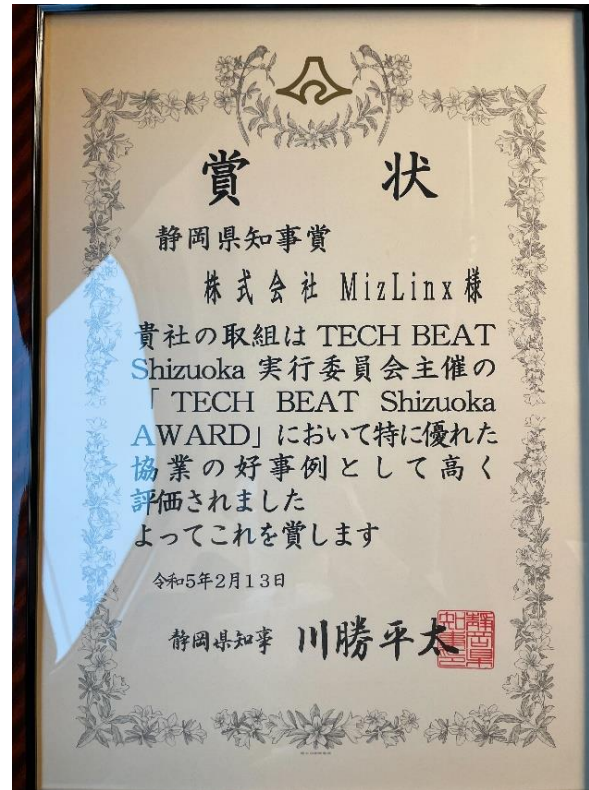 賞 状
静岡県知事賞
株式会社 MizLinx 様
貴社の取組は TECH BEAT
Shizuoka 実行委員会主催の
「TECH BEAT Shizuoka
AWARD」において特に優れた
協業の好事例として高く
評価されました
よってこれを賞します
令和5年2月13日
静岡県知事 川勝平太
静岡県知事之印